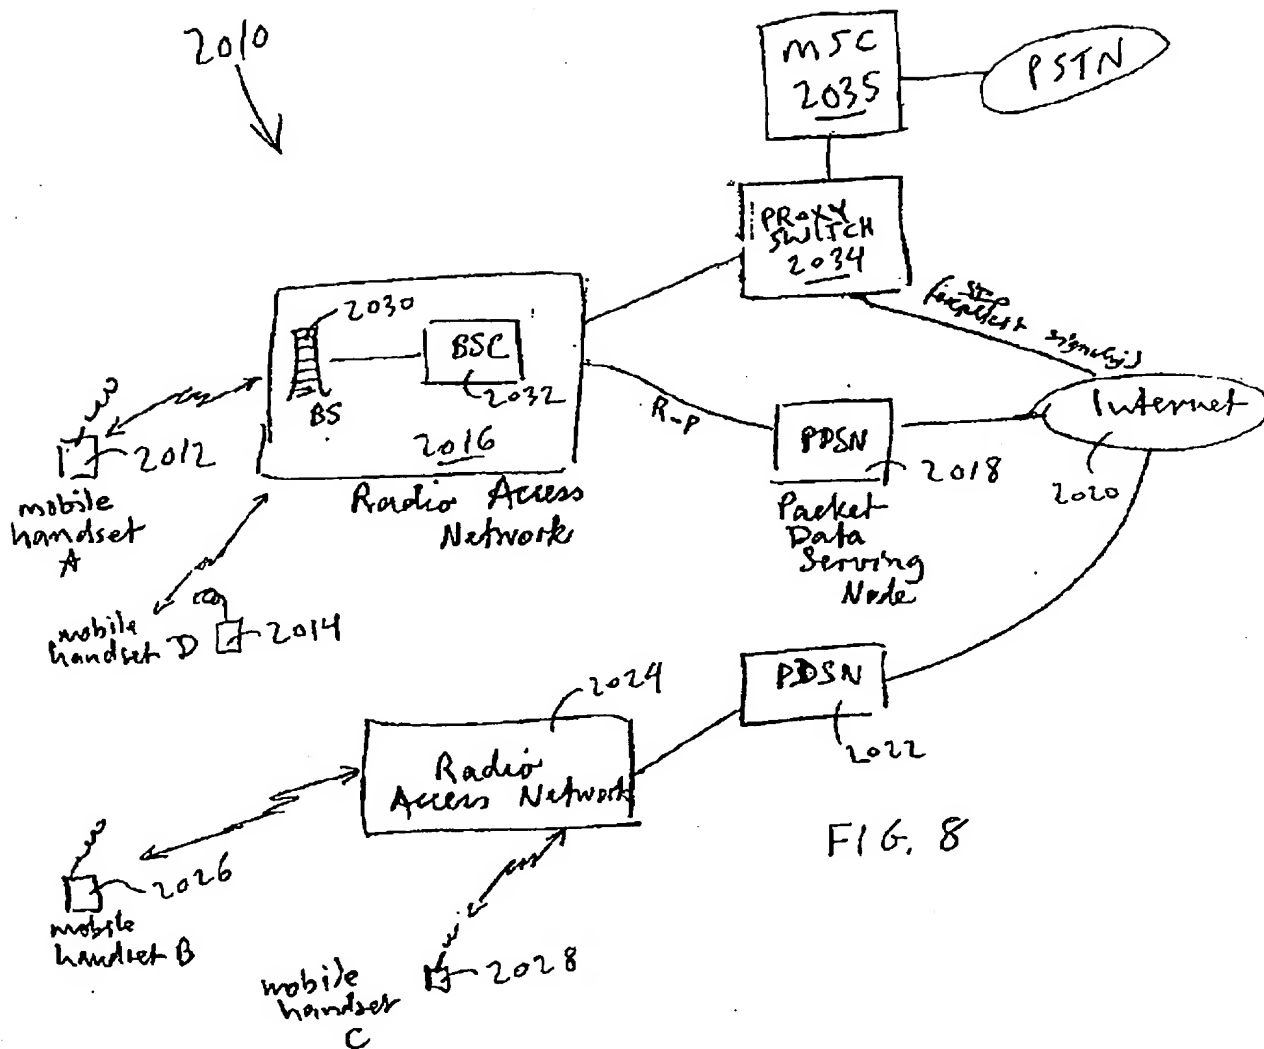 2010
MSC
2035
PSTN
PROXY
SWITCH
2034
SIP
signaling)
2030
BSC
2032
BS
2016
Radio Access
Network
R-P
PDSN
2018
Packet
Data
Serving
Node
Internet
2020
2012
mobile
handset
A
mobile
handset D
2014
2024
Radio
Access Network
PDSN
2022
2026
mobile
handset B
2028
mobile
handset
C
FIG. 8